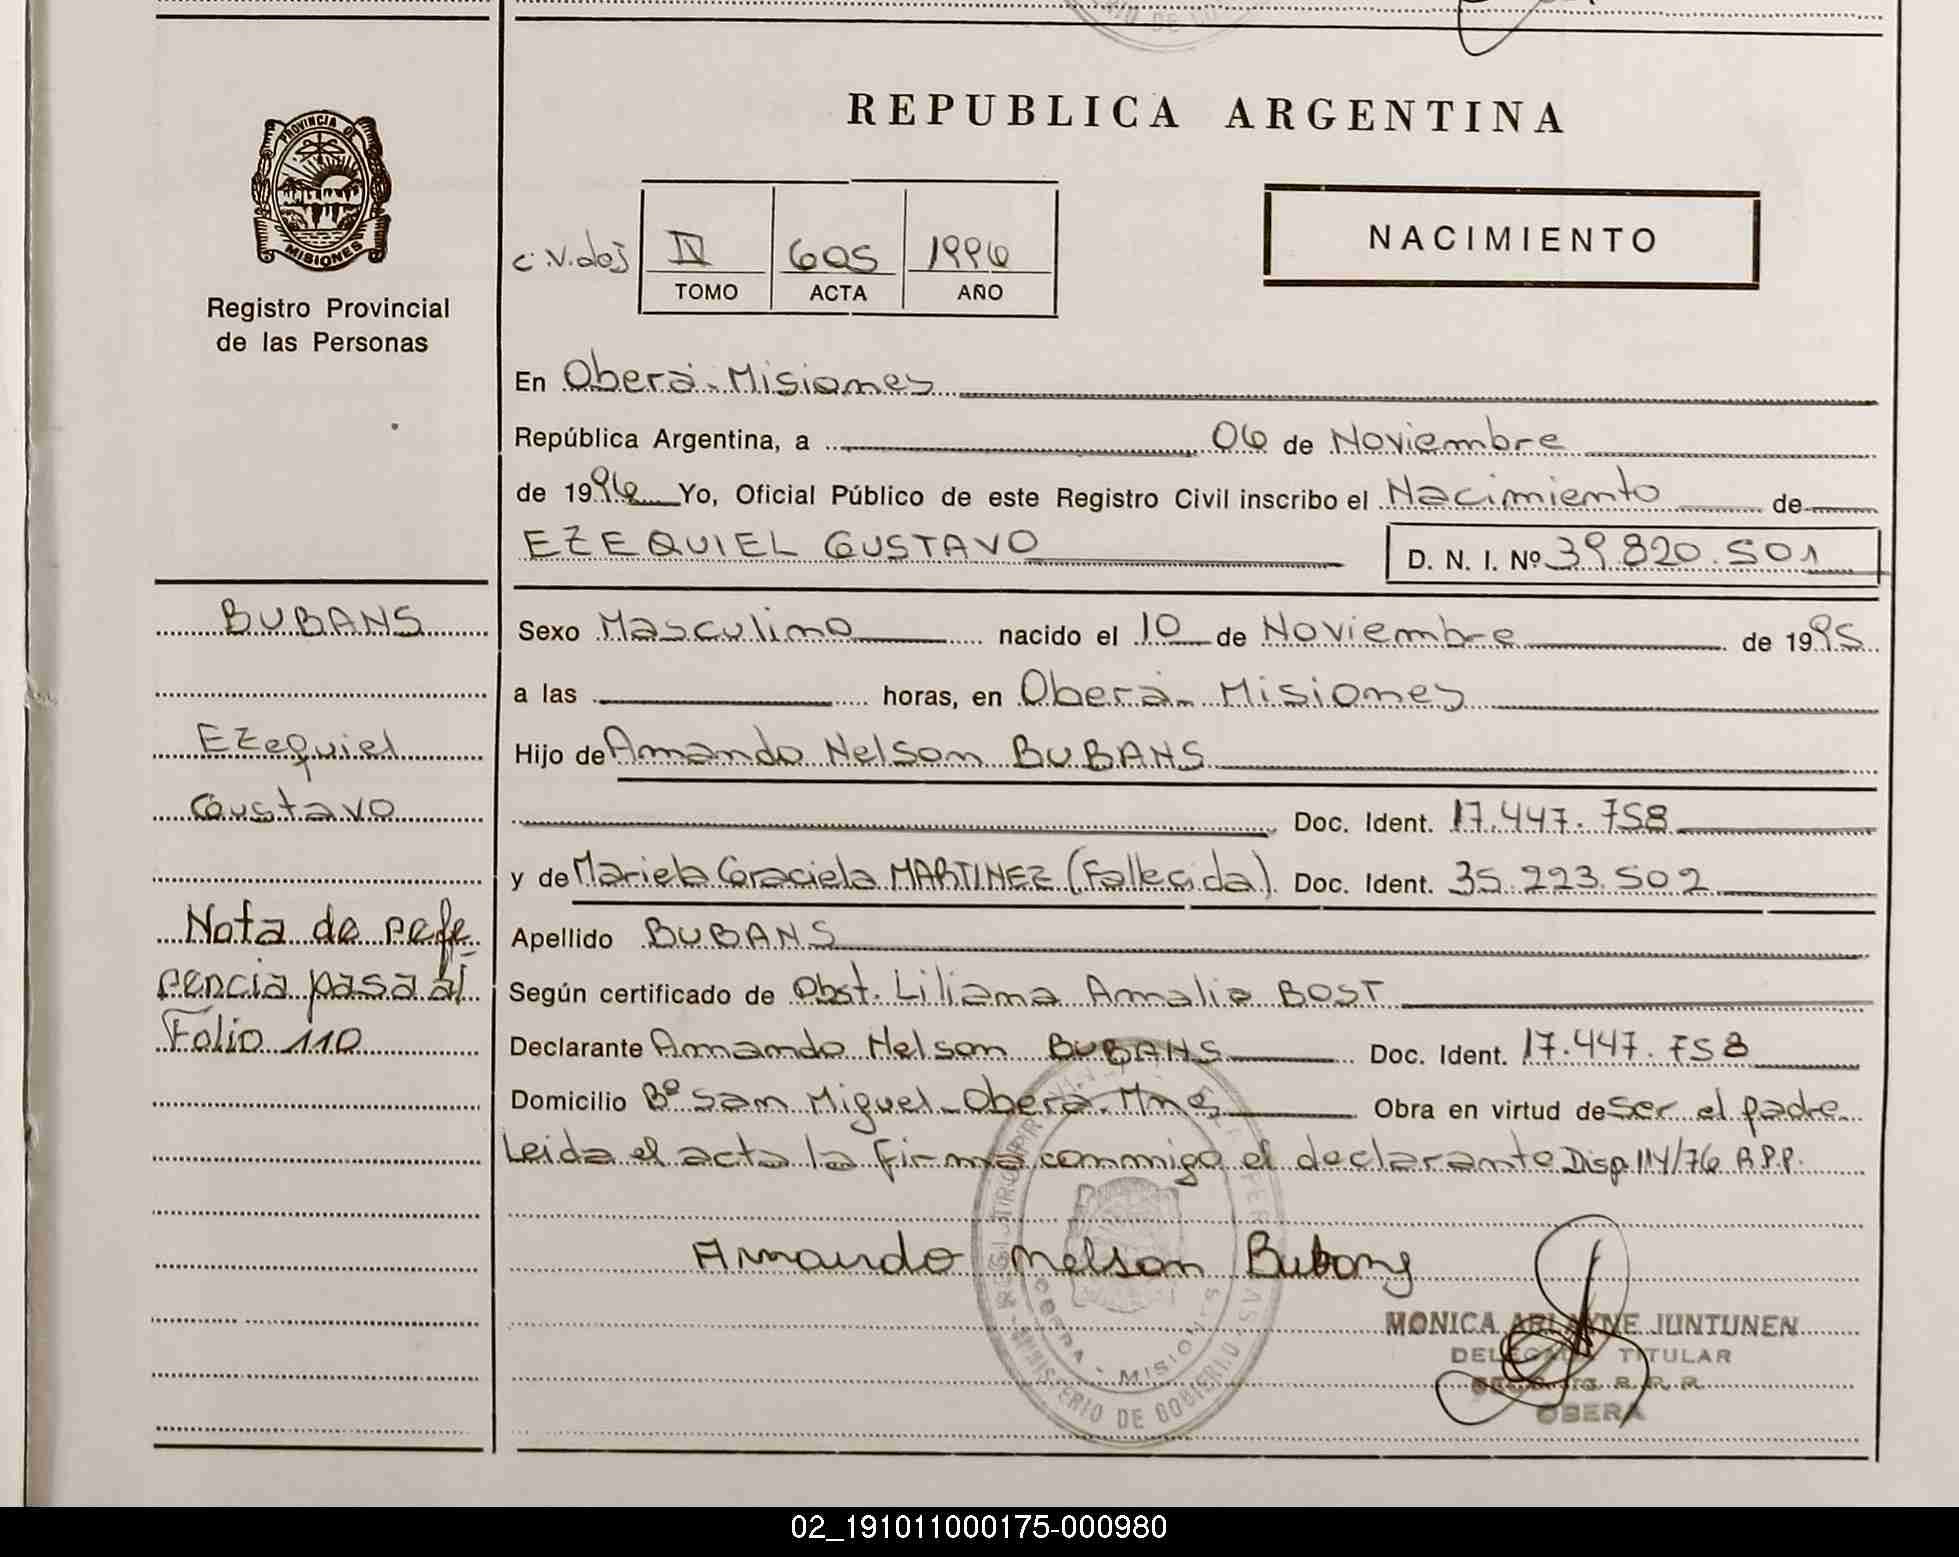 REPUBLICA ARGENTINA
PROVINCIA DE
MISIONES
Registro Provincial
de las Personas
c.V.dos
IV 605 1996
TOMO ACTA AÑO
NACIMIENTO
En Oberá. Misiones
República Argentina, a 06 de Noviembre
de 1996 Yo, Oficial Público de este Registro Civil inscribo el Nacimiento de
EZEQUIEL GUSTAVO D. N. I. Nº 39.820.501
BUBANS
Ezequiel
Gustavo
Nota de refe
rencia pasa al
Folio 110
Sexo Masculino nacido el 10 de Noviembre de 1995
a las horas, en Oberá. Misiones
Hijo de Armando Nelson BUBANS
Doc. Ident. 17.447.758
y de Mariela Graciela MARTINEZ (Fallecida) Doc. Ident. 35.223.502
Apellido BUBANS
Según certificado de Obst. Liliana Amalia BOST
Declarante Armando Nelson BUBANS Doc. Ident. 17.447.758
Domicilio Bº San Miguel. Oberá. Mnes Obra en virtud de ser el padre
Leida el acta la firma conmigo el declarante Disp 114/76 R.P.P.
Armando Nelson Bubans
MONICA ARLAYNE JUNTUNEN
TITULAR
OBERA
OBERA - MISIONES
MINISTERIO DE GOBIERNO
02_191011000175-000980